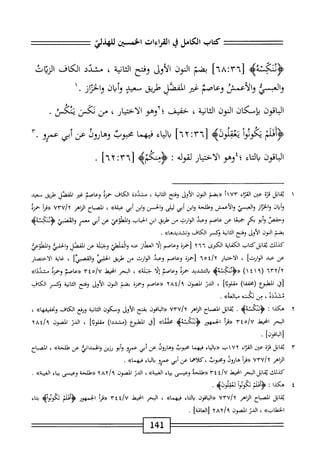 كتاب الكامل في القراءات الخمسين للهذليّ
﴿نُنَكِّسْهُ﴾ [٦٨:٣٦] بضمّ النون الأولى وفتح الثانية ، مشدّد الكاف الزيّات
والعبسيُّ والأعمش وعاصمٌ غير المفضّل طريق سعيدٍ وأبان والخزّاز .١
الباقون بإسكان النون الثانية ، خفيف ؛٢وهو الاختيار ، من نكَسَ يَنْكُس .
﴿أَفَلَمْ يَكُونُوا يَعْقِلُونَ﴾ [٦٢:٣٦] بالياء فيهما محبوبٌ وهارونُ عن أبي عمرو .٣
الباقون بالتاء ؛٤وهو الاختيار لقوله : ﴿مِنكُمْ﴾ [٦٢:٣٦] .
١ يُقابَل قرّة عين القرّاء ١٧٣أ «بضمّ النون الأولى وفتح الثانية ، مشدّدة الكاف حمزة وعاصمٌ غير المفضّل طريق سعيد
وأبان والخزّاز والعبسيّ والأعمش وطلحة وابن أبي ليلى والحسن وابن أبي عبلة» ، المصباح الزاهر ٧٣٧/٢ «قرأ حمزةُ
وحفصٌ وأبو بكرٍ جميعًا عن عاصمٍ وعبدُ الوارث من طريق ابن الحباب والمطّوّعيّ عن أبي معمرٍ والقصَبيّ ﴿نُنَكِّسْهُ﴾
بضمّ النون الأولى وفتح الثانية وكسر الكاف وتشديدها» .
كذلك يُقابَل كتاب الكفاية الكبرى ٢٦٦ [حمزة وعاصم إلّا العطّار عنه والمَلَطيّ وجَبَلة عن المفضّل والحلبيّ والمطّوّعيّ
عن عبد الوارث] ، الاختيار ٦٥٤/٢ [حمزة وعاصم وعبد الوارث من طريق الحلبيّ والقصبيّ] ، غاية الاختصار
٦٣٢/٢ (١٤١٩) «﴿نُنَكِّسْهُ﴾ بالتشديد حمزةُ وعاصمٌ إلّا جَبَلة» ، البحر المحيط ٣٤٥/٧ «عاصمٌ وحمزةُ مشدّدًا»
[في المطبوع (مخففا) مقلوبًا] ، الدرّ المصون ٢٨٤/٩ «عاصم وحمزة بضمّ النون الأولى وفتح الثانية وكسر الكاف
مشدّدةً ، مِن نكّسَه مبالغةً» .
٢ هكذا : ﴿نَنْكُسْهُ﴾ . يُقابَل المصباح الزاهر ٧٣٧/٢ «الباقون بفتح الأولى وسكون الثانية ورفع الكاف وتخفيفها» ،
البحر المحيط ٣٤٥/٧ «قرأ الجمهور ﴿نَنْكُسْهُ﴾ مخفّفًا» [في المطبوع (مشددا) مقلوبًا] ، الدرّ المصون ٢٨٤/٩
[الباقون] .
٣ يُقابَل قرّة عين القرّاء ١٧٢ب «بالياء فيهما محبوبٌ وهارونُ عن أبي عمرٍو وأبو رزين والهمدانيُّ عن طلحة» ، المصباح
الزاهر ٧٣٧/٢ «قرأ هارونُ ومحبوبٌ ، كلاهما عن أبي عمرٍو بالياء فيهما» .
كذلك يُقابَل البحر المحيط ٣٤٤/٧ «طلحةُ وعيسى بياء الغيبة» ، الدرّ المصون ٢٨٢/٩ «طلحةُ وعيسى بياء الغيبة» .
٤ هكذا : ﴿أَفَلَمْ تَكُونُوا تَعْقِلُونَ﴾ .
يُقابَل المصباح الزاهر ٧٣٧/٢ «الباقون بالتاء فيهما» ، البحر المحيط ٣٤٤/٧ «قرأ الجمهور ﴿أَفَلَمْ تَكُونُوا﴾ بتاء
الخطاب» ، الدرّ المصون ٢٨٢/٩ [العامّة] .
141